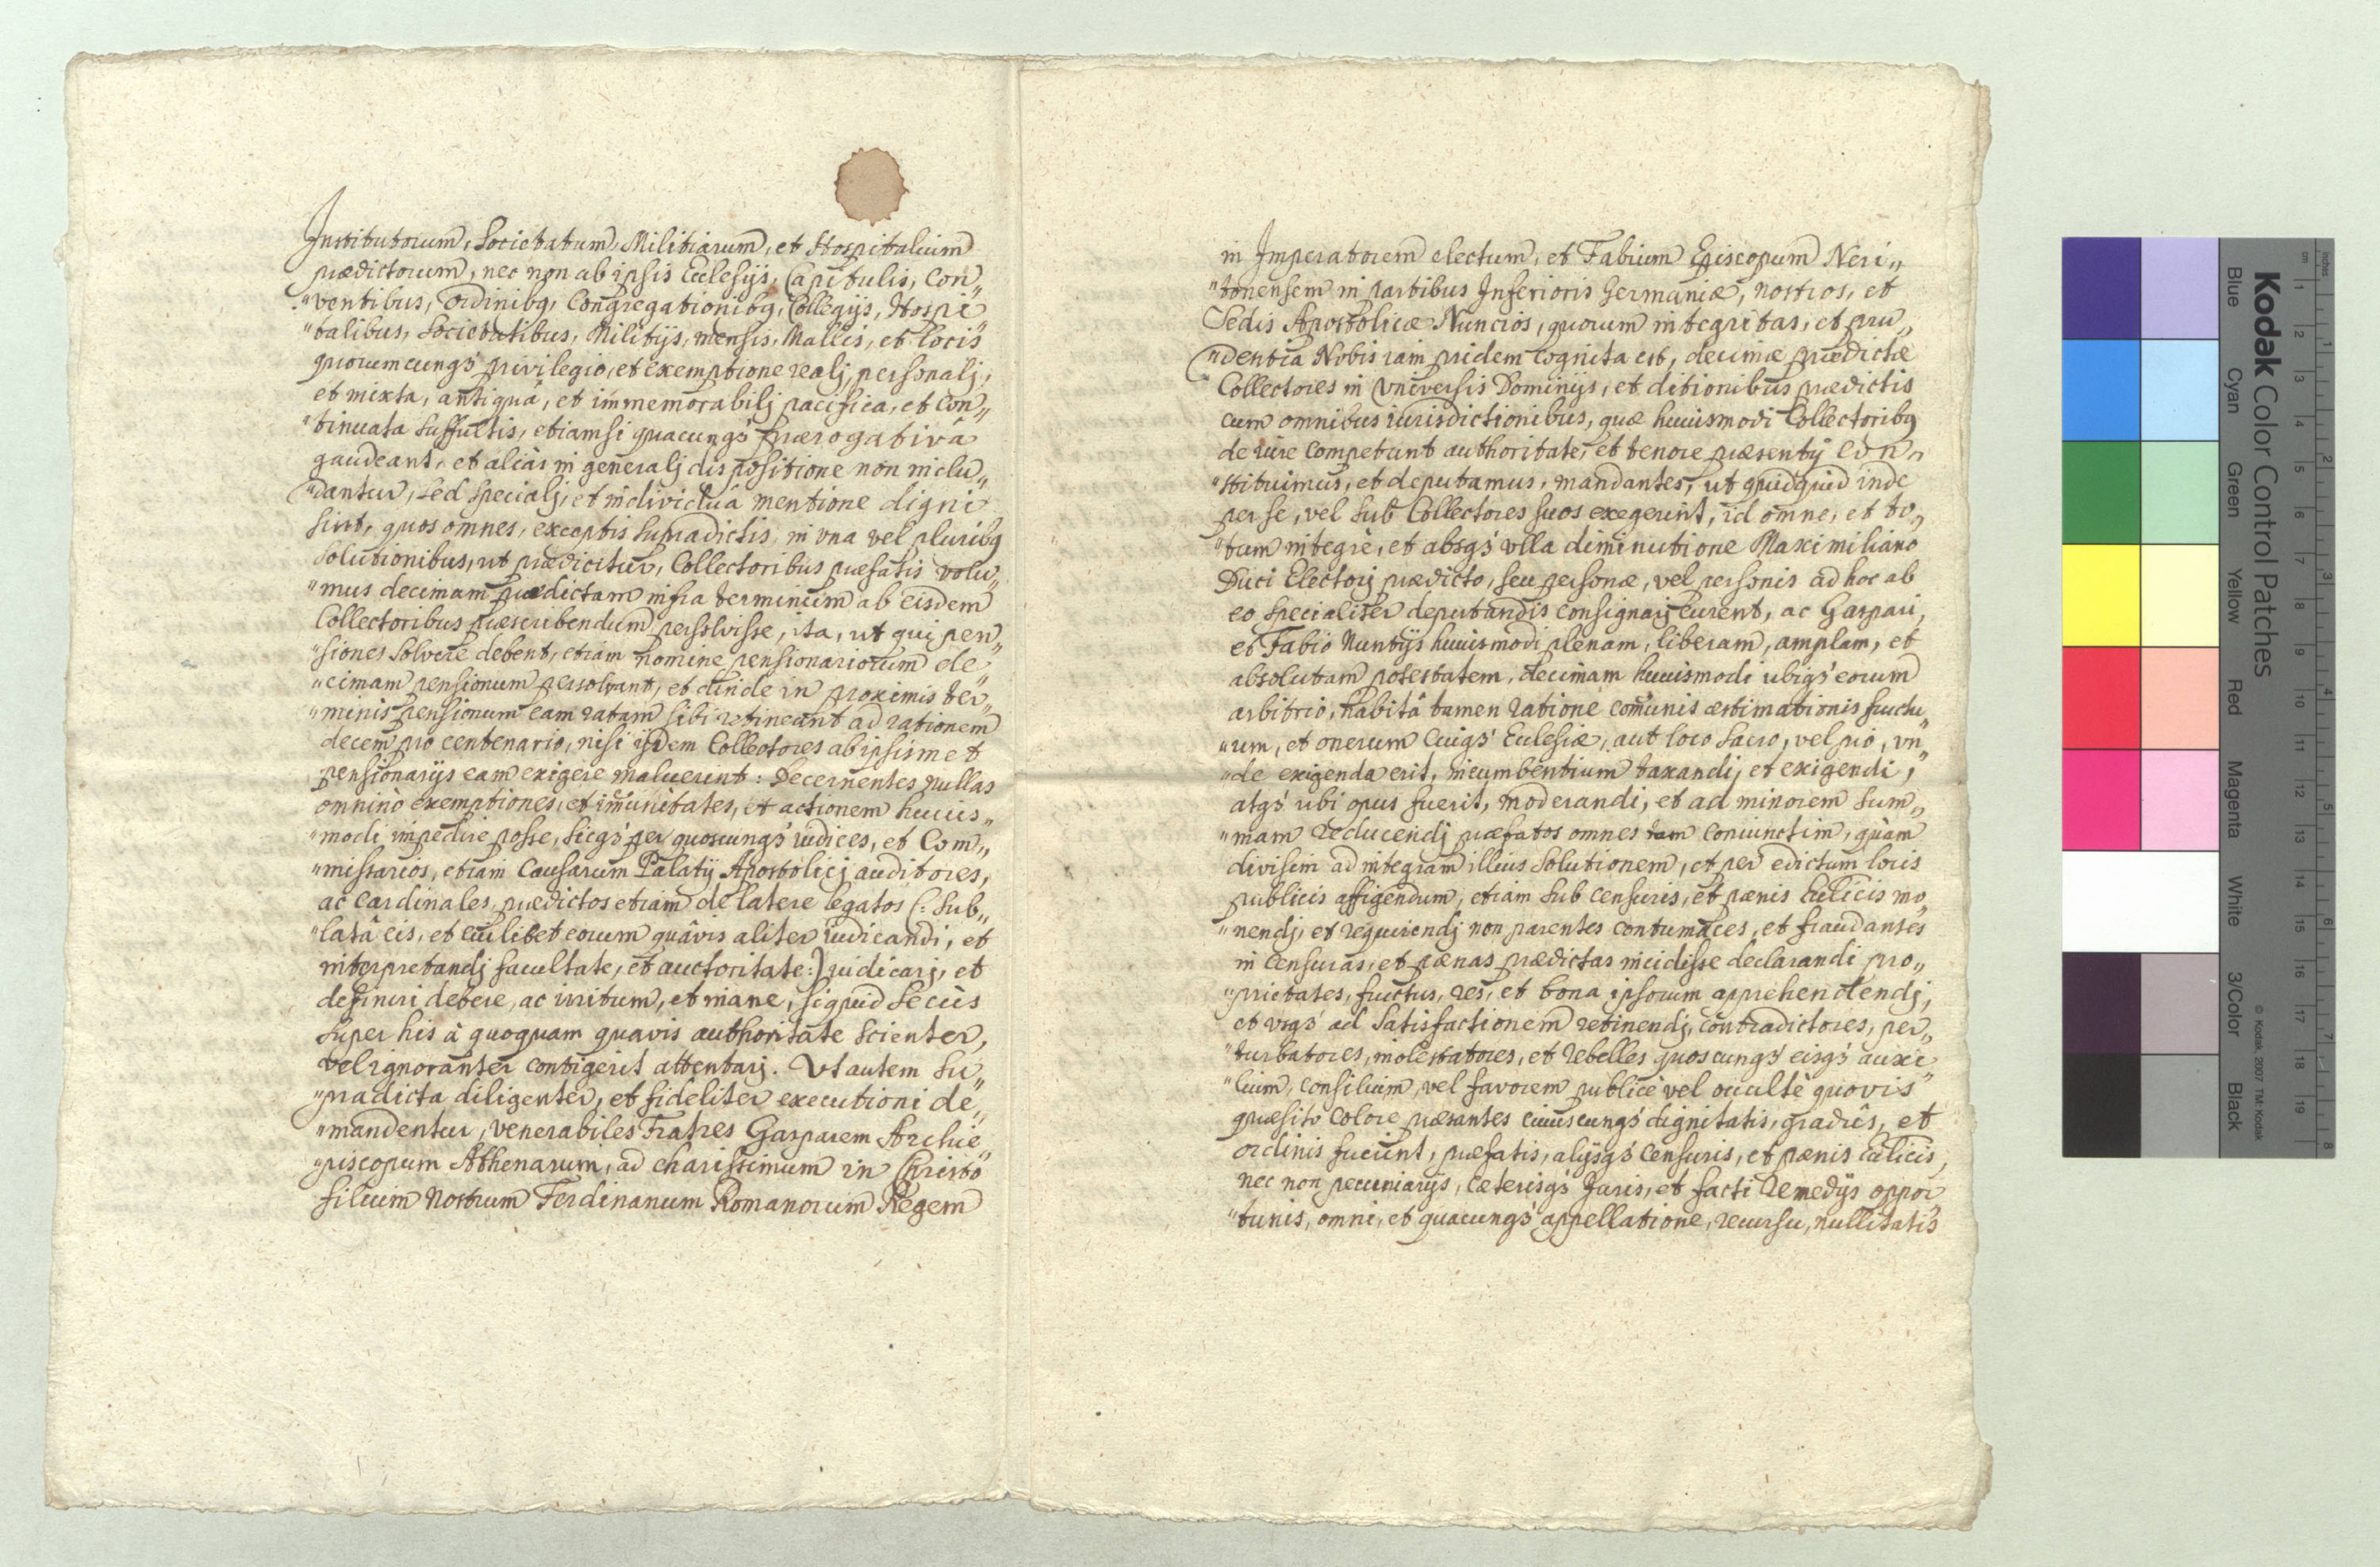 Institutorum, Societatum, Militiarum, et Hospitalium
prædictorum, nec non ab ipsis Ecclesijs, Capitulis, Con„
„ventibus, Ordinibq, Congregationibq, Collegijs, Hospi„
„talibus, Societatibus, Militijs, mensis, Mallis, et locis
quorumcunqs' privilegio, et exemptione realj, personalj,
et mixta, antiquá, et immemorabilj pacifica, et con„
„tinuata suffultis, etiamsi quacunqs' prærogativâ
gaudeant, et aliàs in generalj dispositione non inclu„
„dantur, sed specialj, et individuá mentione digni
sint, quos omnes, exceptis supradictis, in vna vel pluribq
solutionibus, ut prædicitur, Collectoribus præfatis volu„
„mus decimam prædictam infra terminum ab eisdem
Collectoribus præscribendum persolvisse, ita, ut qui pen„
„siones solvere debent, etiam nomine pensionariorum de„
„cimam pensionum persolvant, et deinde in proximis ter„
„minis pensionum eam ratam sibi retineant ad rationem
decem pro centenario, nisi ijdem Collectores ab ipsismet
pensionarijs eam exigere maluerint: Decernentes nullas
omninò exemptiones, et im̃unitates, et actionem huius„
„modi impedire posse, sicqs' per quoscunqs' iudices, et Com„
„missarios, etiam Causarum Palatij Apostolicj auditores,
ac Cardinales, prædictos etiam de latere legatos (: sub„
„latâ eis, et cuilibet eorum quâvis aliter iudicandi, et
interpretandj facultate, et auctoritate:) iudicarj, et
definiri debere, ac irritum, et inane, siquid secùs
super his à quoquam quavis authoritate scienter,
vel ignoranter contigerit attentarj. Vt autem su„
„pradicta diligenter, et fideliter executioni de„
„mandentur, venerabiles Fratres Gasparem Archie„
„piscopum Athenarum, ad charissimum in Christo
filium nostrum Ferdinanum Romanorum Regem
in Imperatorem electum, et Fabium Episcopum Neri„
„tonensem in partibus Inferioris Germaniæ, nostros, et
Sedis Apostolicæ Nuncios, quorum integritas, et pru„
„dentia Nobis iam pridem cognita est, decimæ prædictæ
Collectores in vniversis Dominijs, et ditionibus prædictis
cum omnibus iurisdictionibus, quæ huiusmodi Collectoribq
de iure competunt authoritate, et tenore præsentiũ con„
„stituimus, et deputamus, mandantes, ut quidquid inde
per se, vel sub Collectores suos exegerint, id omne, et to„
„tum integrè, et absqs' vlla diminutione Maximiliano
Duci Electorj prædicto, seu personæ, vel personis ad hoc ab
eo specialiter deputandis consignarj curent, ac Gaspari,
et Fabio Nuntijs huiusmodi plenam, liberam, amplam, et
absolutam potestatem, decimam huiusmodi ubiqs' eorum
arbitrio, habitâ tamen ratione com̃unis æstimationis fructu„
„um, et onerum Cuiqs' Ecclesiæ, aut loco sacro, vel pio, vn„
„de exigenda erit, incumbentium taxandj, et exigendi,
atqs' ubi opus fuerit, moderandi, et ad minorem sum„
„mam reducendj præfatos omnes tam coniunctim, quàm
divisim ad integram illius solutionem, et per edictum locis
publicis affigendum, etiam sub censuris, et pænis Ecclicis mo„
„nendj, et requirendj non parentes contumaces, et fraudantes
in censuras, et pænas prædictas incidisse declarandi pro„
„prietates, fructus, res, et bona ipsorum apprehendendj,
et vsqs' ad satisfactionem retinendj, contradictores, per„
„turbatores, molestatores, et rebelles quoscunqs' eisqs' auxi„
„lium, consilium, vel favorem publicè vel occultè quovis
quæsito colore præstantes cuiuscunqs' dignitatis, gradûs, et
ordinis fuerint, præfatis, alijsqs' censuris, et pænis Ecclicis,
nec non pecuniarijs, cæterisqs' Juris, et facti remedijs oppor„
„tunis, omni, et quacunqs' appellatione, recursu, nullitatis
Kodak Color Control Patches
Blue
Cyan
Green
Yellow
Red
Magenta
White
3/Color
Black
© Kodak, 2007 TM: Kodak